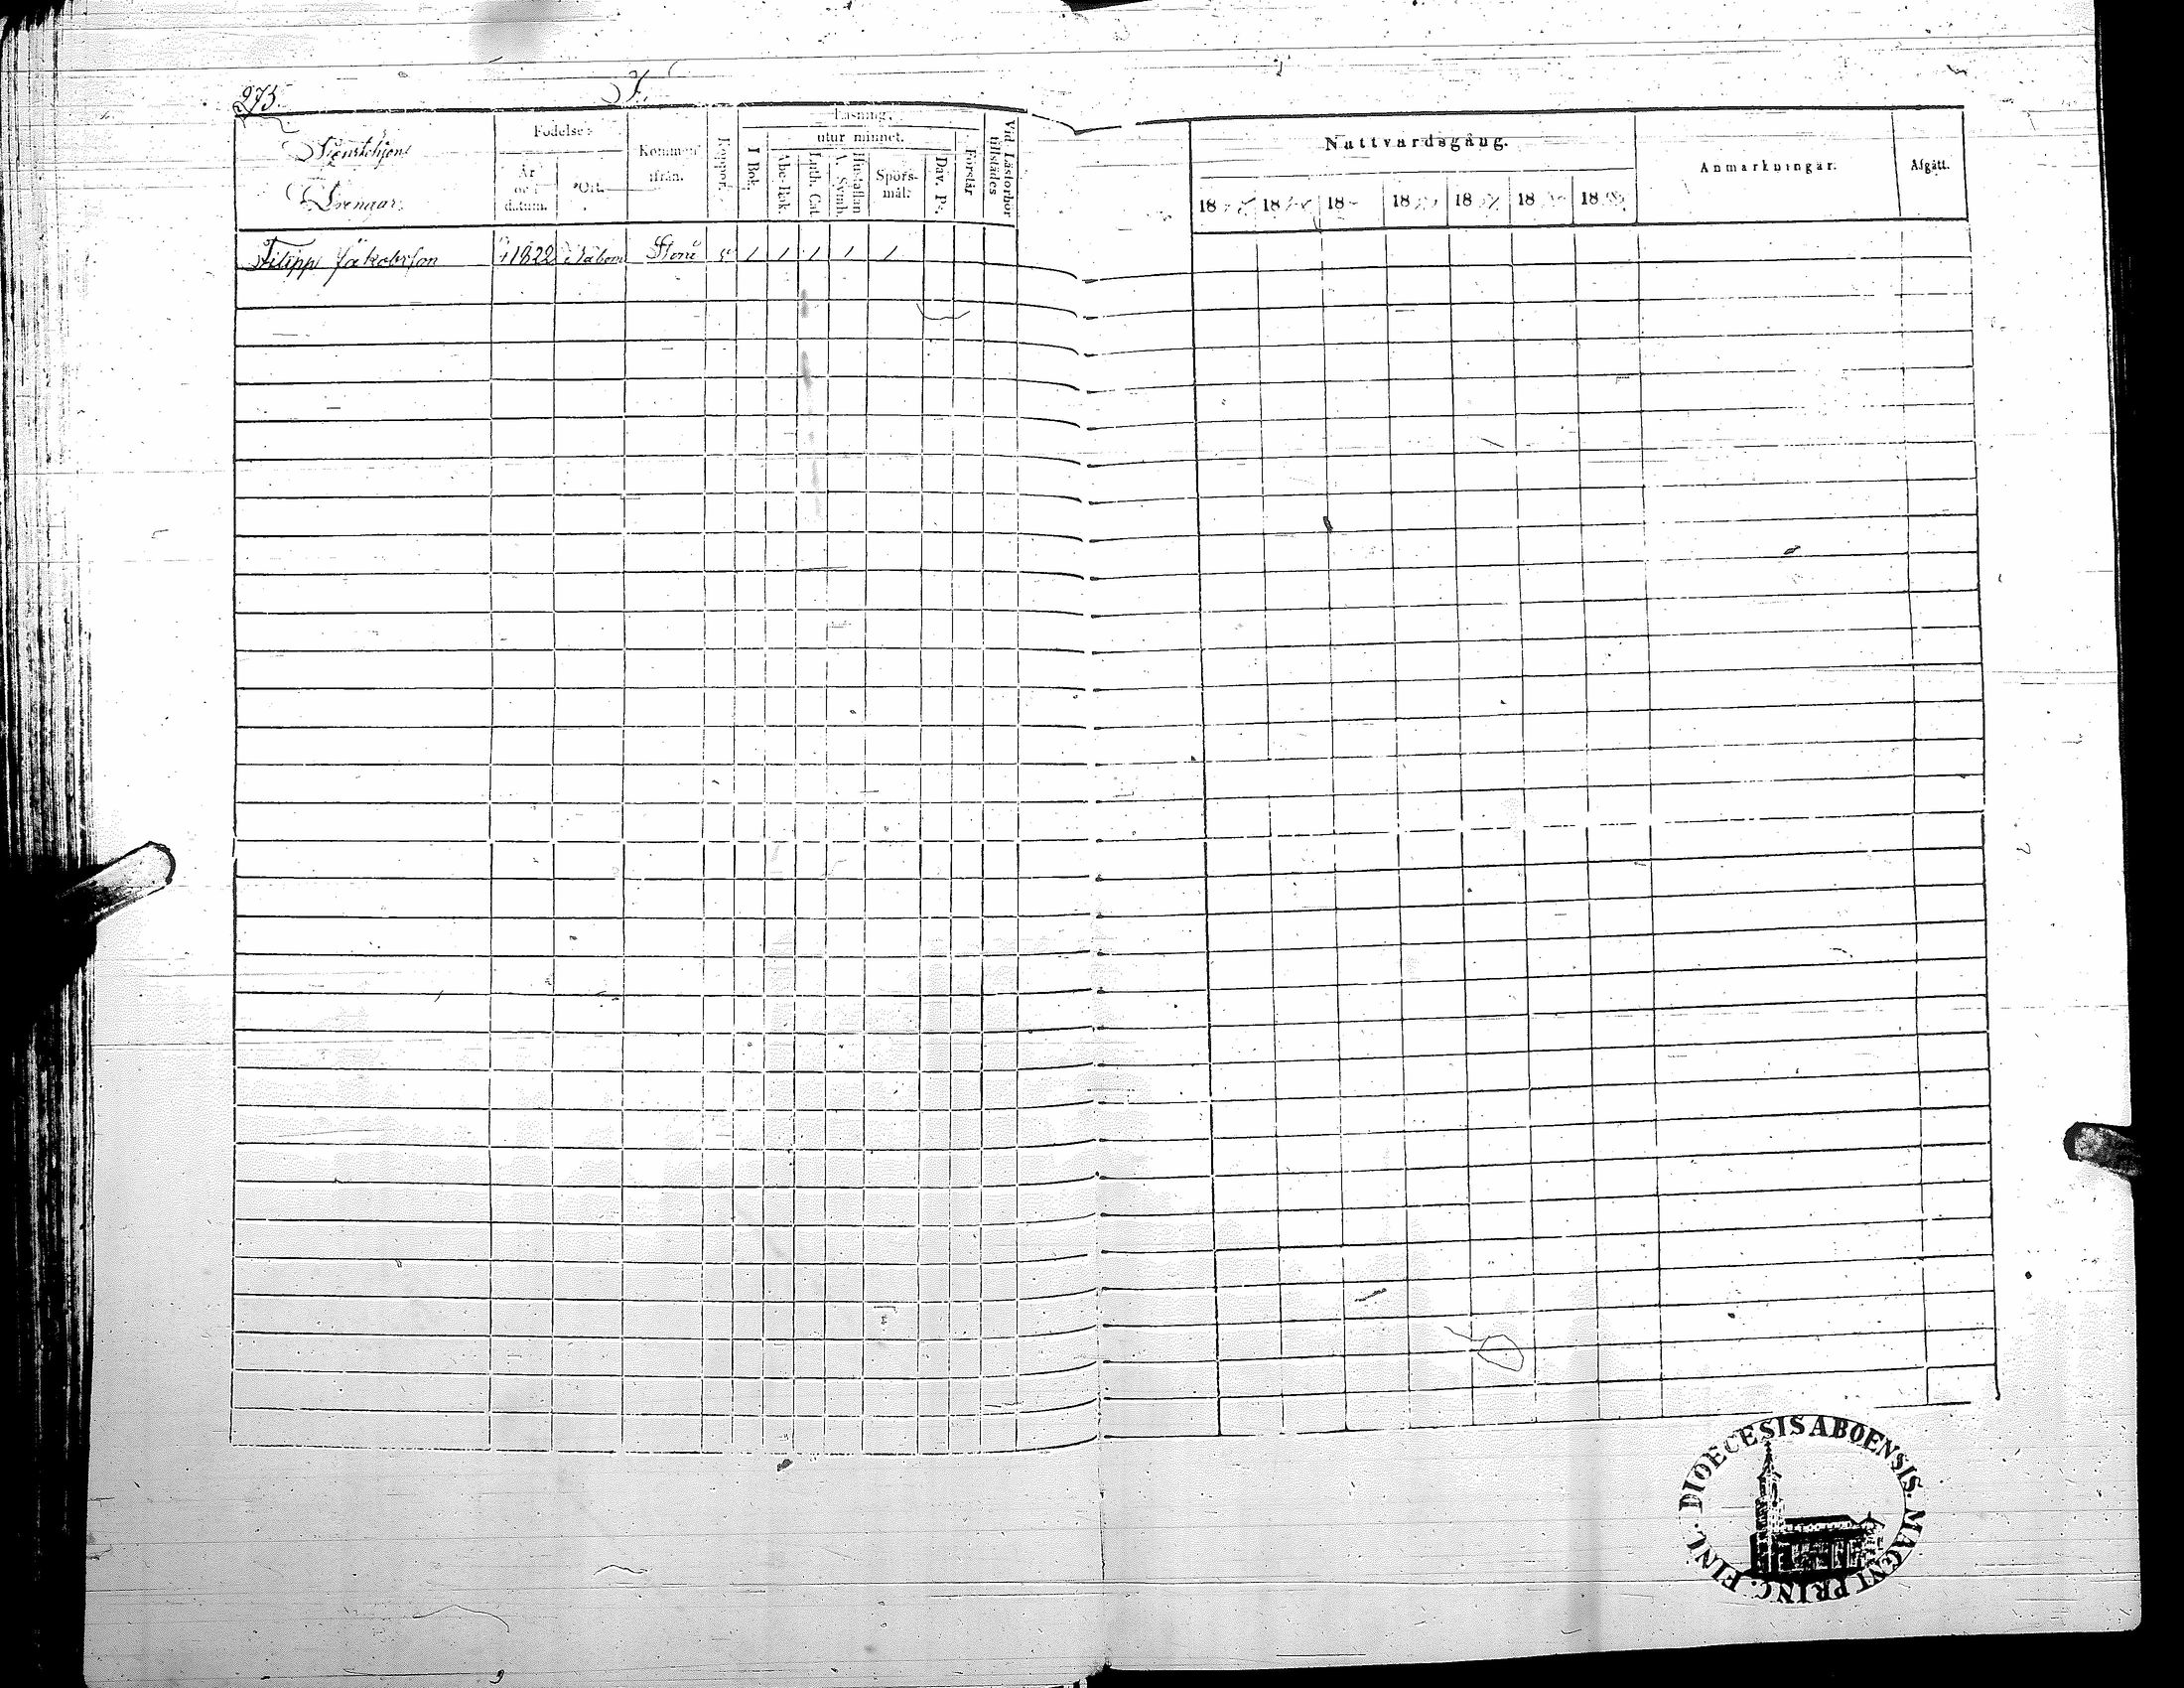 275. F.
Tjenstehjon
Drengar.
Födelse-
År och datum.
Ort.
Kommen ifrån.
Koppor.
Läsning.
I Bok.
utur minnet.
Abc-Bok.
Luth. Cat.
Hustaflan A. Symb.
Spörs-mål.
Dav. Ps.
Förstår
Vid Läsförhör tillstädes
Nattvardsgång.
18 18 18 18 18 18 18
Anmärkningar.
Afgått.
Filipp Jakobsson 1822
DIOECESIS ABOENSIS. MAGNI PRINC. FINL.